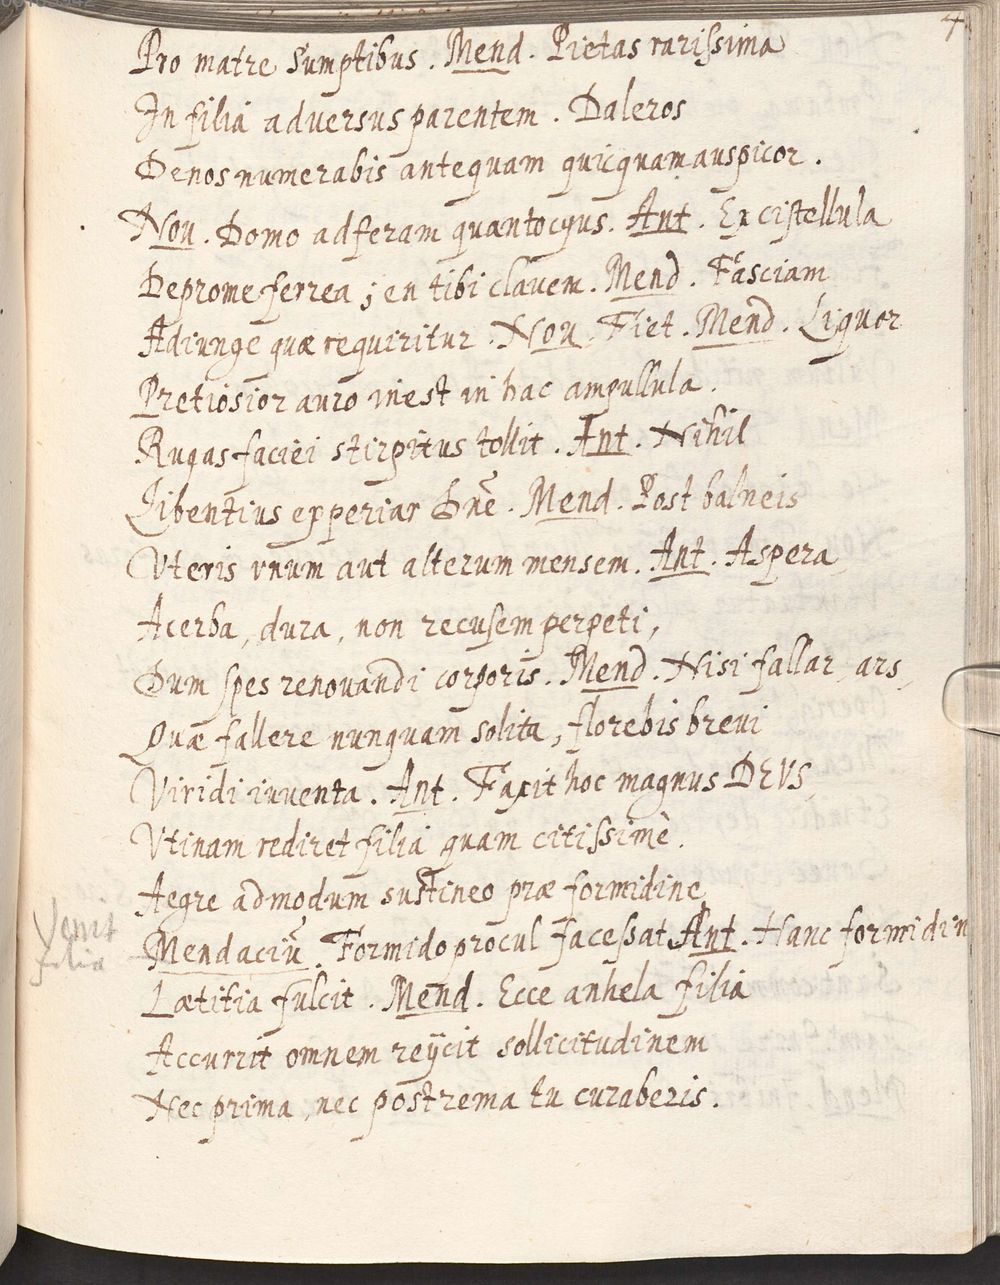 7
Pro matre sumptibus. Mend. Pietas rarissima
In filia adversus parentem. Daleros
Denos numerabis antequam quicquam auspicor.
Nou. Domo adferam quantocyus. Ant. Ex cistellula
Deprome ferrea; en tibi clauem. Mend. Fasciam
Adiunge quæ requiritur. Nou. Fiet. Mend. Liquor
Pretiosior auro inest in hac ampullula.
Rugas faciei stirpitus tollit. Ant. Nihil
Libentius experiar Dne. Mend. Post balneis
Vteris vnum aut alterum mensem. Ant. Aspera
Acerba, dura, non recusem perpeti,
Dum spes renouandi corporis. Mend. Nisi fallar ars
Quæ fallere nunquam solita, florebis breui
Viridi iuuenta. Ant. Faxit hoc magnus DEVS
Vtinam rediret filia quam citissimè.
Aegre admodum sustineo præ formidine
Mendaciũ. Formido procul facessat Ant. Hanc formidin
Venit
filia
Lætitia fulcit. Mend. Ecce anhela filia
Accurrit omnem reijcit sollicitudinem
Nec prima, nec postrema tu curaberis.